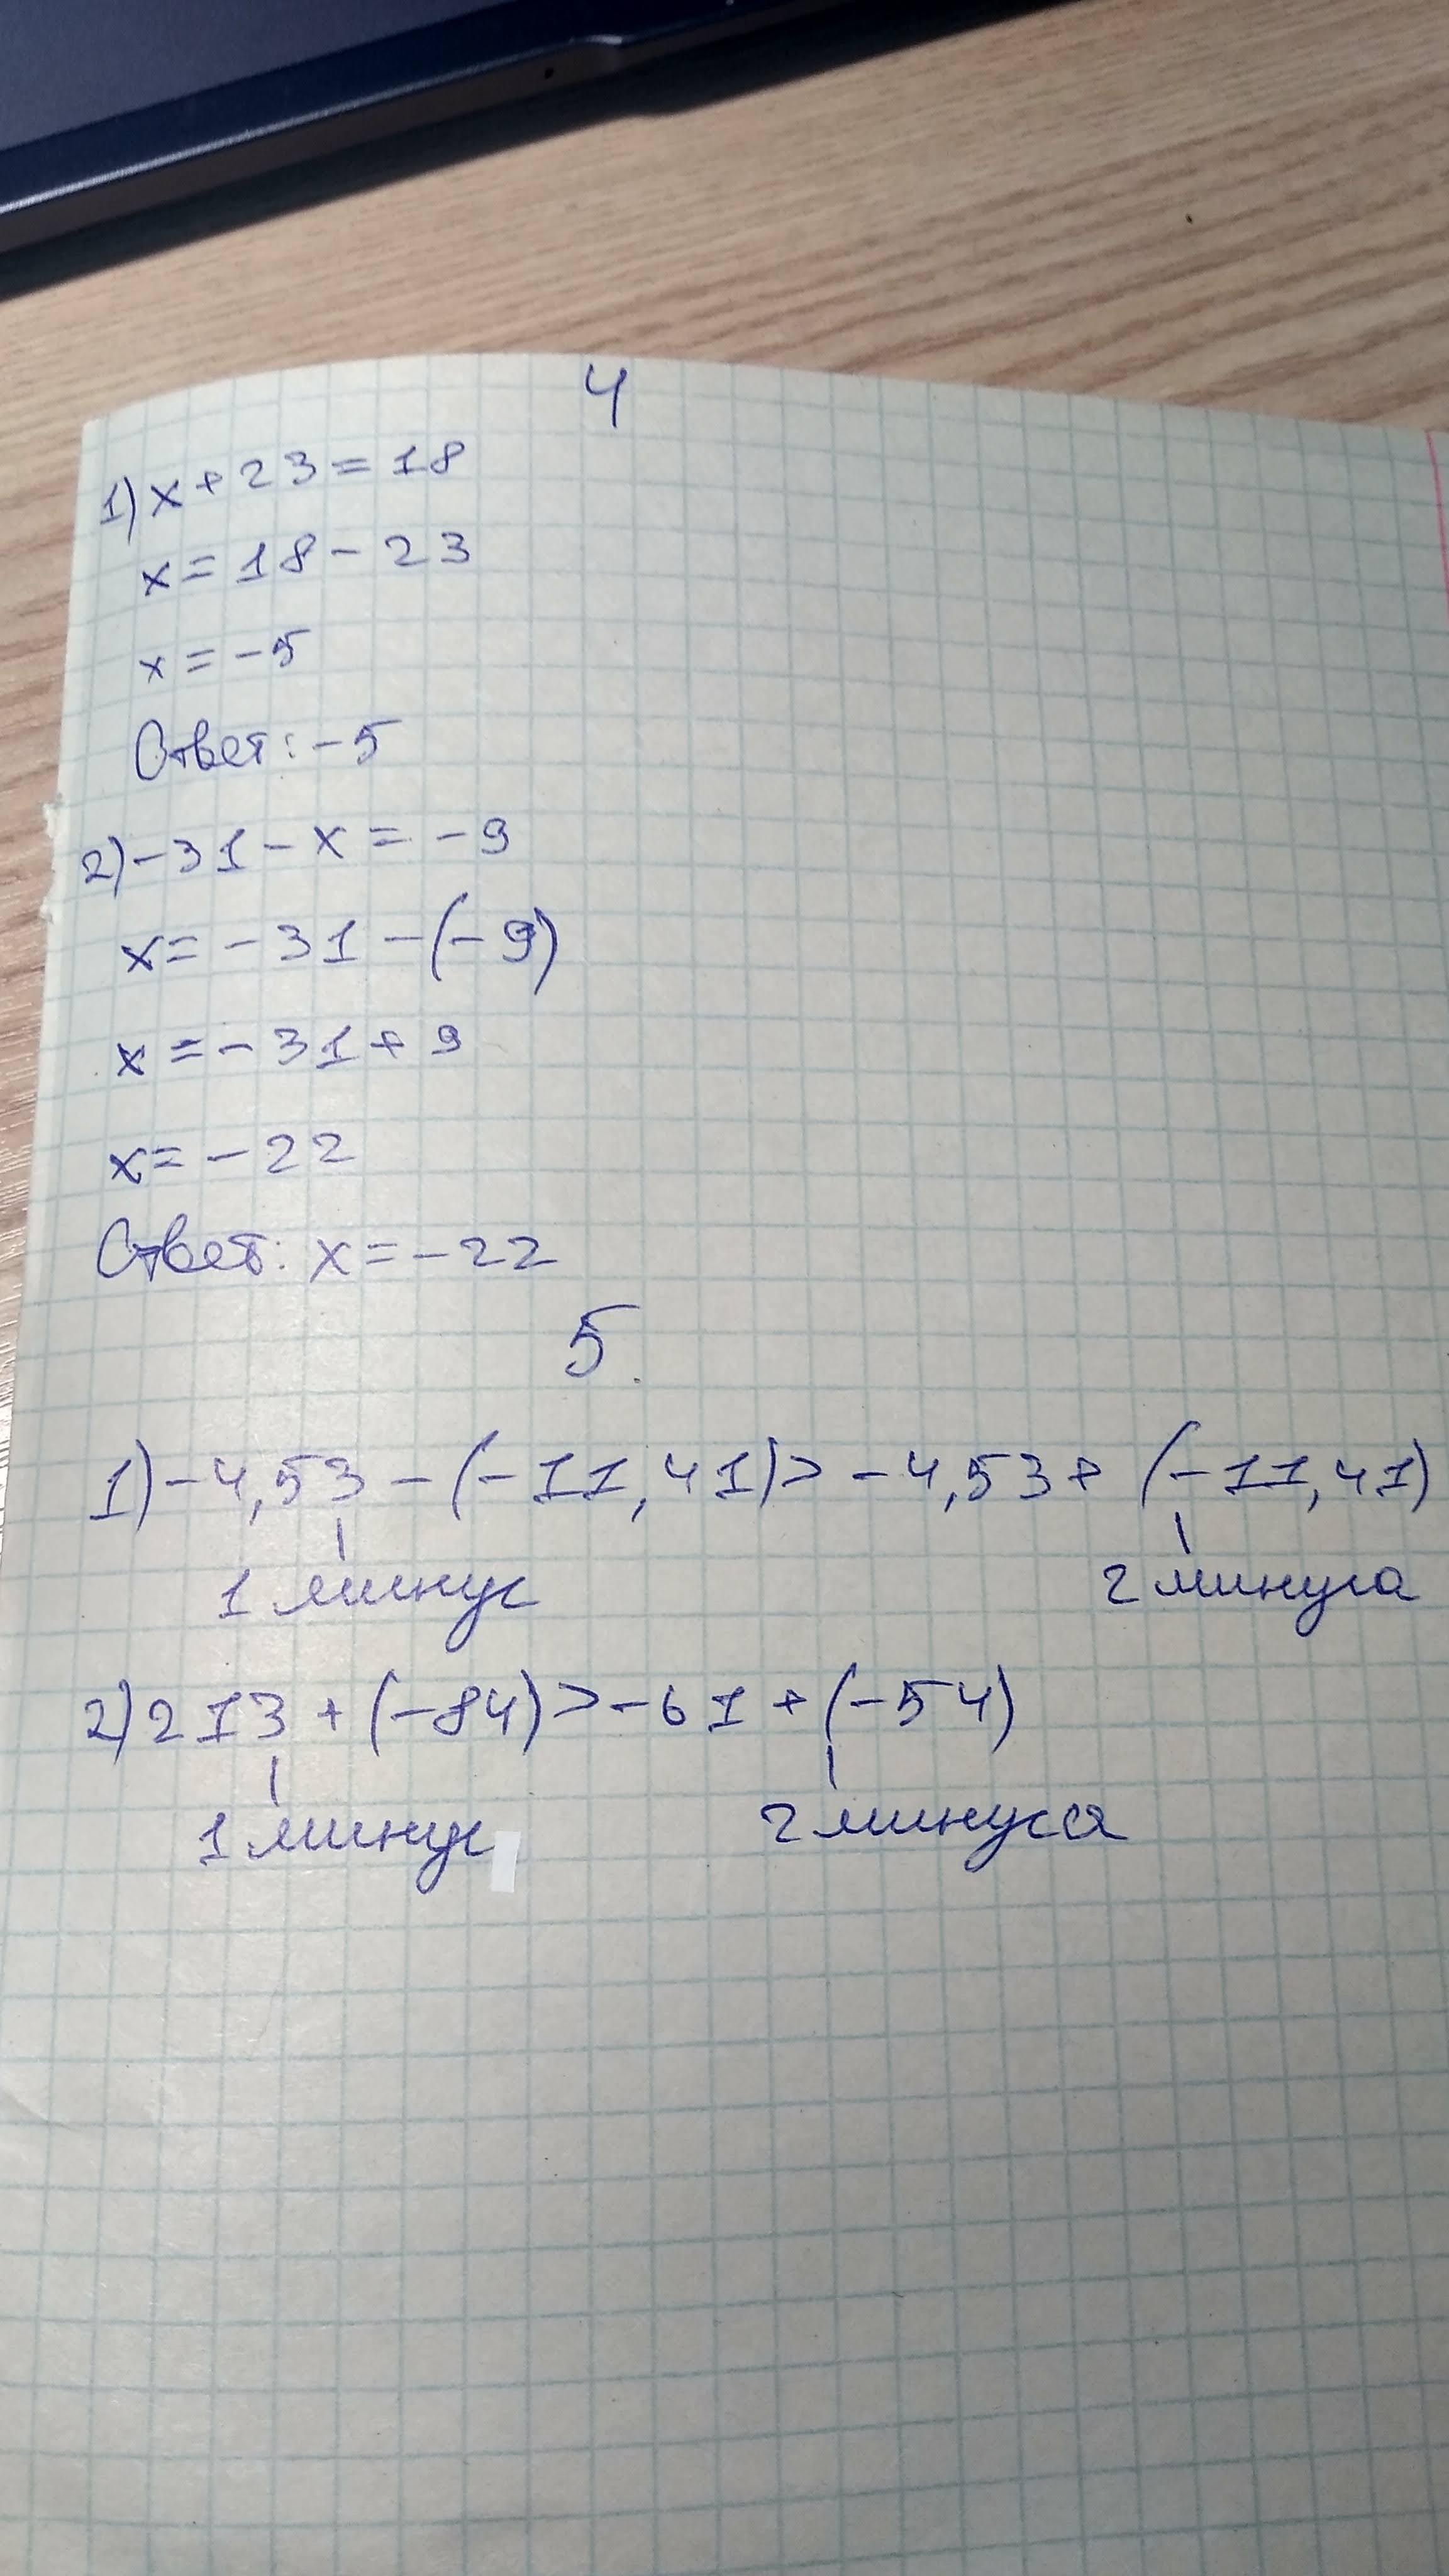 4
1) x + 23 = 18
x = 18 - 23
x = -5
Ответ: -5
2) -31 - x = -9
x = -31 - (-9)
x = -31 + 9
x = -22
Ответ: x = -22
5.
1) -4,53 - (-11,41) > -4,53 + (-11,41)
1 минус 2 минуса
2) 213 + (-84) > -61 + (-54)
1 минус 2 минуса